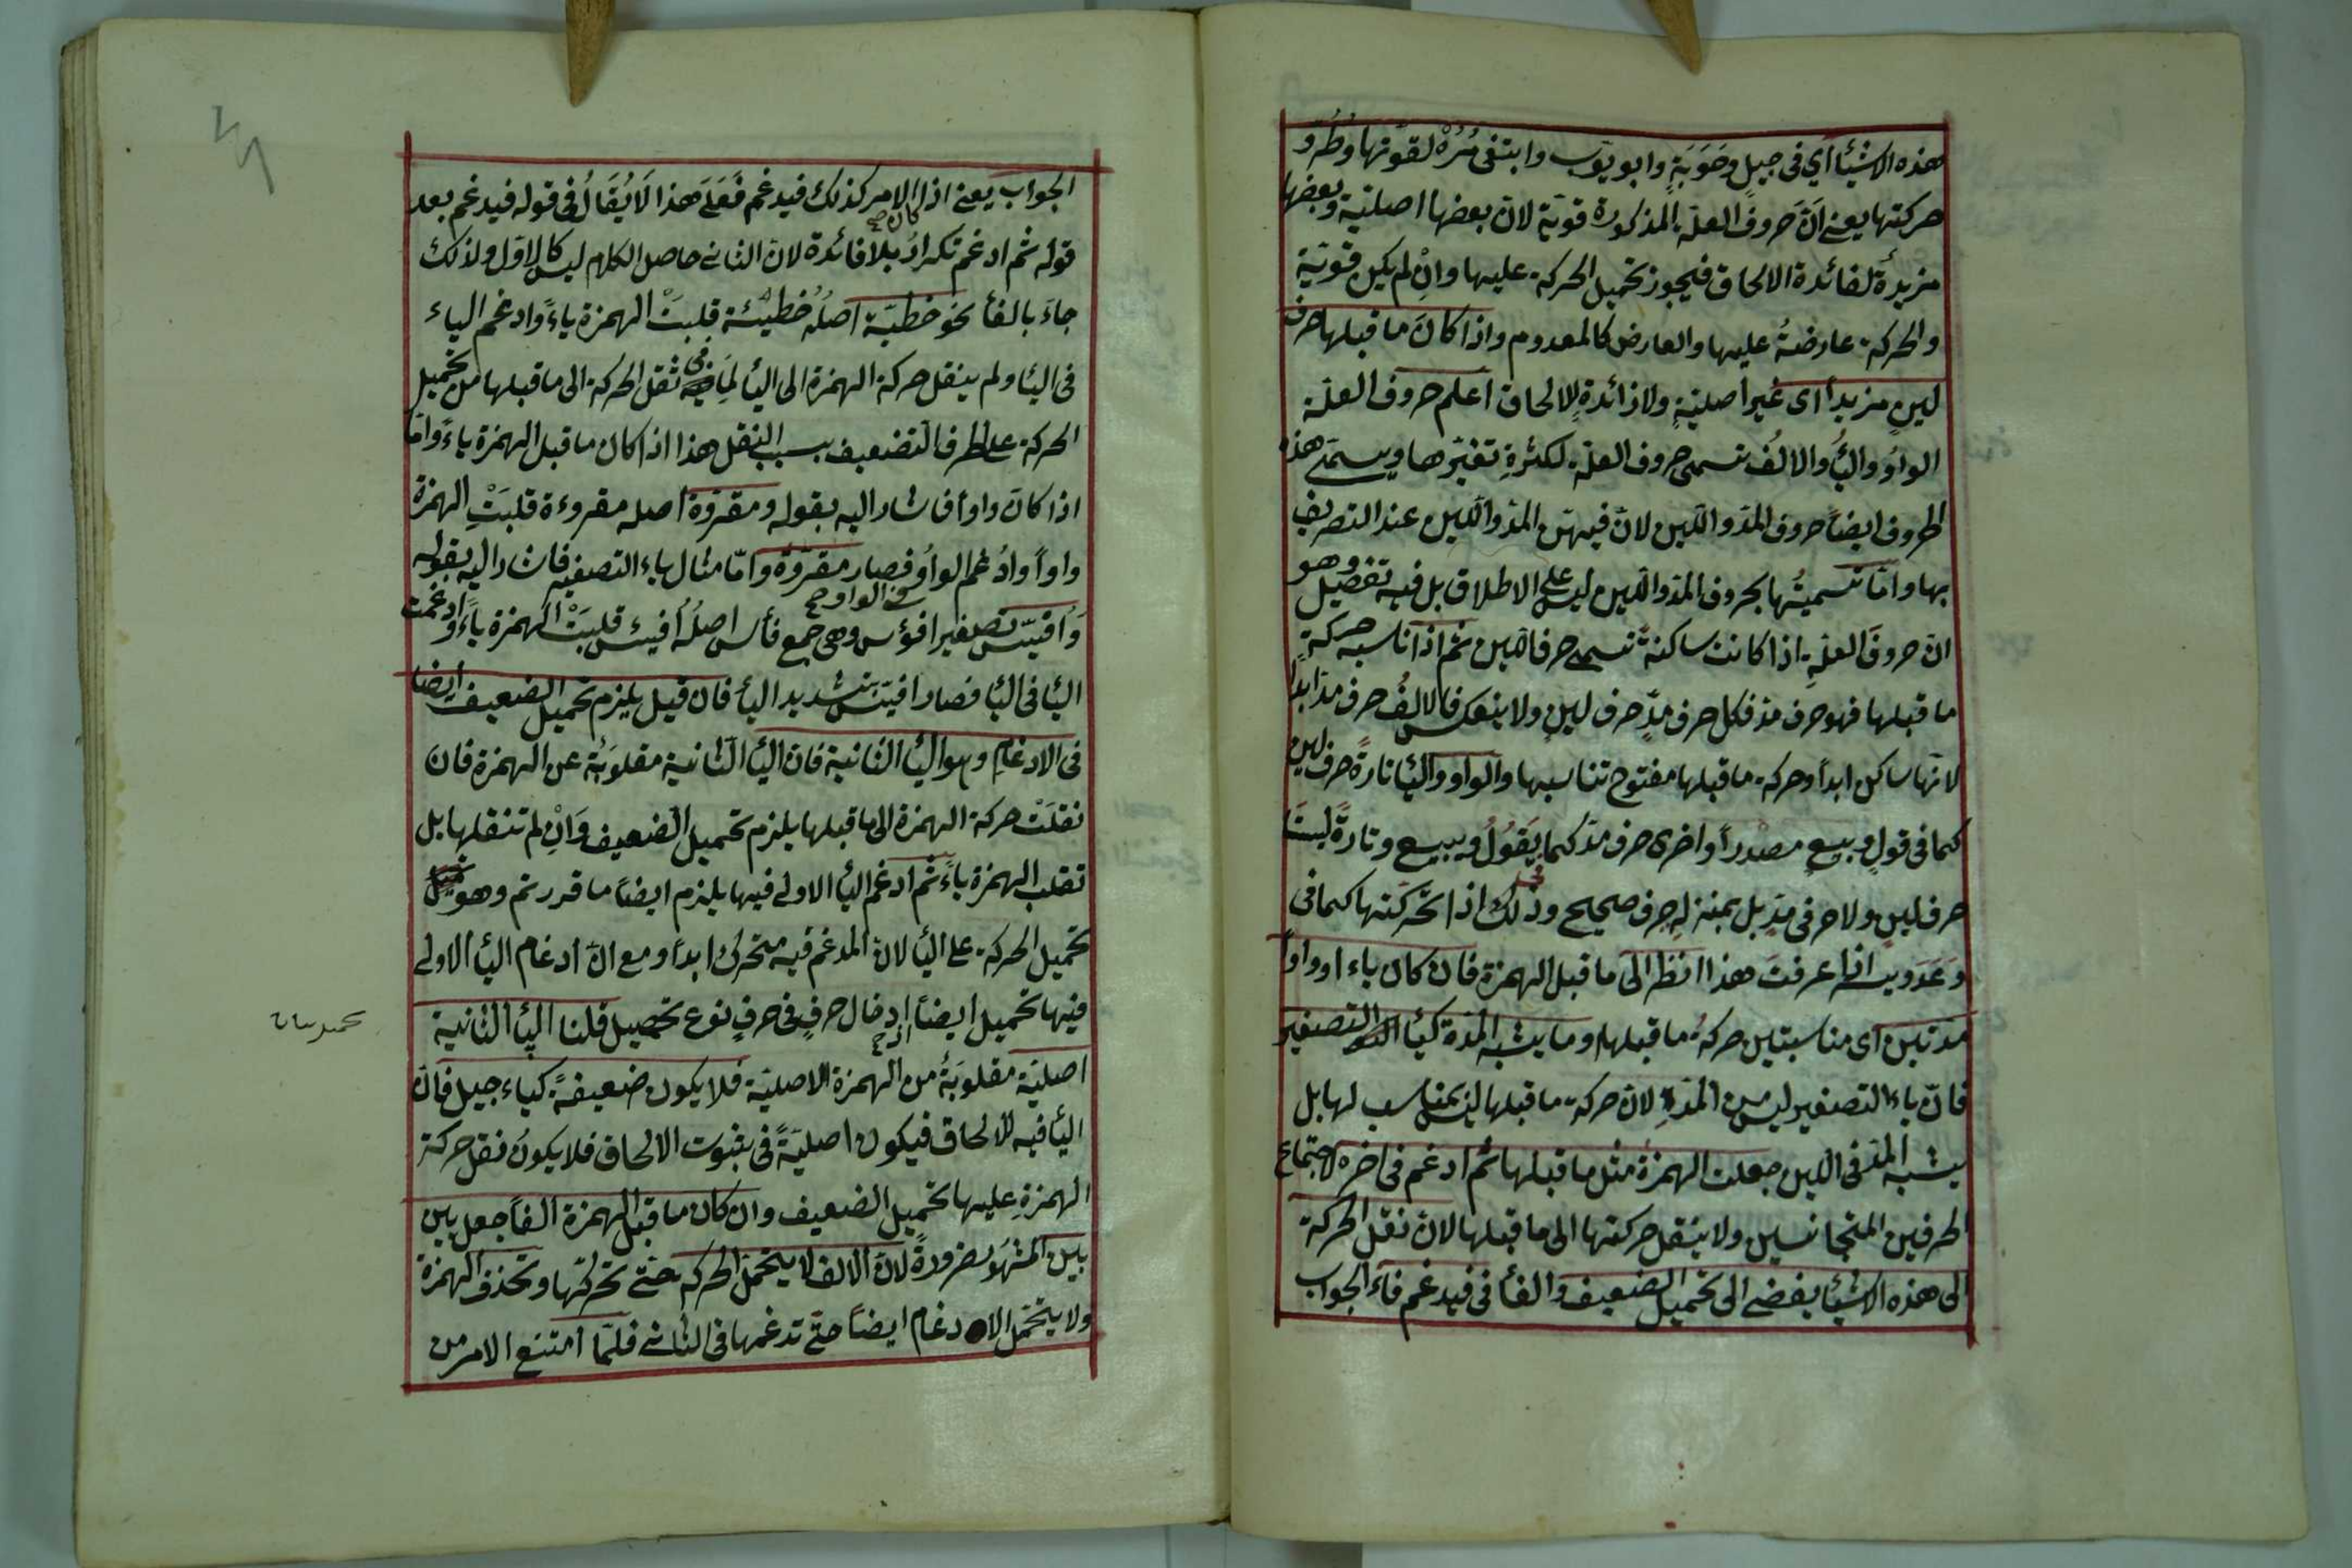 هذه الاشئا اي فى جيل وحَوَبَةٍ وابو يّوب وابتغى مُرُهْ لقوتها وطُرَوِ
حركتها يعنى اَنّ حروف العلّة المذكورة قويّة لانّ بعضها اصليّة وبعضها
مزيدةٌ لفائدة الالحاق فيجوز تحميل الحركة عليها وانْ لم يكن قويّة
والحركة عارضةُ عليها والعارض كالمعدوم واذا كانَ ما قبلها حرف
لينٍ مزيداً اى غير اصليّةٍ ولا زائدةٍ للالحاق اعلم حروف العلّة
الواوُ والئاُ والالُف تسمى حروف العلّة لكثرةِ تغيّرها ويسمّى هذه
الحروف ايضاً حروف المدّ واللّين لانّ فيهنّ المدّ واللّين عند التصريف
بها وامّا تسميتُها بحروف المدّ واللّين ليس على الاطلاق بل فيه تفصيل وهو
انّ حروفَ العلّةِ اذا كانت ساكنةً تسمى حرف اللّين ثم اذا ناسبه حركة
ما قبلها فهو حرف مدّ فكل حرف مدٍّ حرف لينٍ ولا ينعكس فالالفُ حرف مدّ ابداً
لانّها ساكن ابداً وحركة ما قبلها مفتوح تناسبها والواو والئا تارةً حرف لين
كما فى قولٍ وبيعٍ مصْدراً واخرى حرف مدّ كما يَقُولُ ويبيع وتارةً ليستا
حرف لينٍ ولا حرفى مدٍّ بل بمنزلةِ حرف صحيح وذلك اذا تحرّكتها كما فى
وَعَدَ ويسر اذا عرفتَ هذا انظر الَى ما قبل الهمزة فان كان ياء او واواً
مدّتين اى مناسبتين حركةُ ما قبلها وما يشبه المدّة كئا التصغير
فانّ ياء التصغير ليس من المدّةِ لانّ حركة ما قبلها ليس بمناسب لها بل
يشبه المدّ فى اللّين جعلت الهمزة مثل ما قبلها ثم ادغم فى اخره لاجتماع
الحرفين المتجانسين ولا ينقل حركتها الى ما قبلها لانّ نقل الحركة
الى هذه الاشئا يفضى الى تحميل الضعيف والفأ فى فيدغم فاء الجواب
الجواب يعنى اذا كان الامر كذلك فيدغم فَعَلَى هذا لَا يُقَالُ فى قوله فيدغم بعد
قوله ثم ادغم تكرارُ بلا فائدة لانّ الثانى حاصل الكلام ليس كالاوّل ولذلك
جاءَ بالفأ نحو خطيّة اصلُهُ خطيْئة قلبتْ الهمزة ياءً وادغم الياء
فى الئا ولم ينقل حركة الهمزة الى اليأ لِمَا فى ثقل الحركة الى ما قبلها من تحميل
الحركة على الحرف الضعيف بسبب النقل هذا اذا كان ما قبل الهمزة ياءً وامّا
اذا كانَ واواً فاشار اليه بقوله ومقروّة اصله مقروءة قلبَتِ الهمزة
واواً وادُغم الواوُ فى الواو صح فصار مقروّة وامّا مثال ياء التصغير فاشار اليه بقوله
وَاُفيّس تصغير افؤس وهى جمع فأس اصلُهُ اُفيئس قلبَتْ الهمزة ياءً وادغمت
الئا فى الئا فصار افيّس بتشديد اليأ فان قيل يلزم تحميل الضعيف ايضا
فى الادغامِ وهو الئا الثانية فان الئا الثانية مقلوبَةُ عن الهمزة فان
نقلَتْ حركة الهمزة الى ما قبلها يلزم تحميل الضعيف وَانْ لم تنقلها بل
تقلب الهمزة ياءً ثم ادغم الئا الاولى فيها يلزم ايضاً ما قررتم وهو
تحميل الحركة على الئا لانّ المدغم فيه متحرك ابداً ومع انّ ادغام الئا الاولى
فيها تحميل ايضاً اذ صح ادخال حرفٍ فى حرفٍ نوع تحميل قلنا الئا الثانية
تحميل بيان
اصليّة مقلوبَةُ من الهمزة الاصليّة فلا يكون ضعيفةً كياء جيل فانّ
الئا فيه للالحاق فيكون اصليّةً فى ثبوت الالحاق فلا يكونُ نقل حركة
الهمزةِ عليها تحميل الضعيف وان كان ما قبل الهمزة الفاً جعل بين
بين المشهُور ضرورةً لانّ الالف لا يتحمّل الحركة حتّى تحركتها وتحذف الهمزة
ولا يتحمّل الادغام ايضاً حتّى تدغمها فى الثانى فلمّا امتنع الامر من